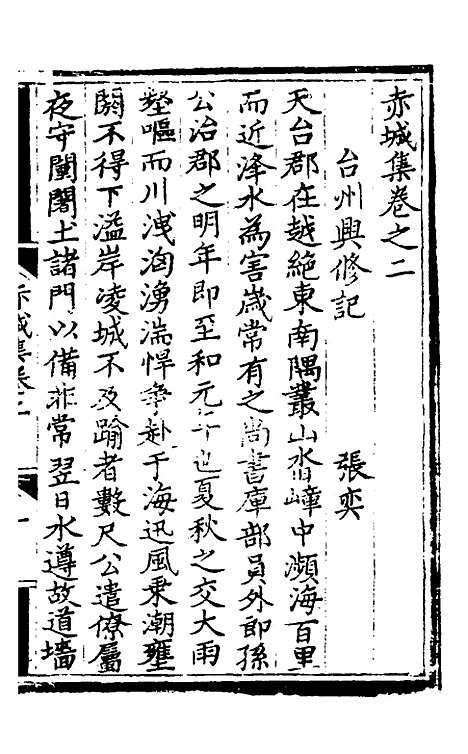 赤城集卷之二
台州興修記　張奕
天台郡在越絕東南隅叢山沓嶂中瀕海百里
而近洚水為害歲常有之尚書庫部員外郎孫
公治郡之明年即至和元年也夏秋之交大雨
壑嘔而川洩洶湧湍悍爭赴于海迅風乘潮壅
閼不得下溢岸凌城不及踰者數尺公遣僚屬
夜守闉闍土諸門以備非常翌日水遵故道墻
赤城集卷二
一